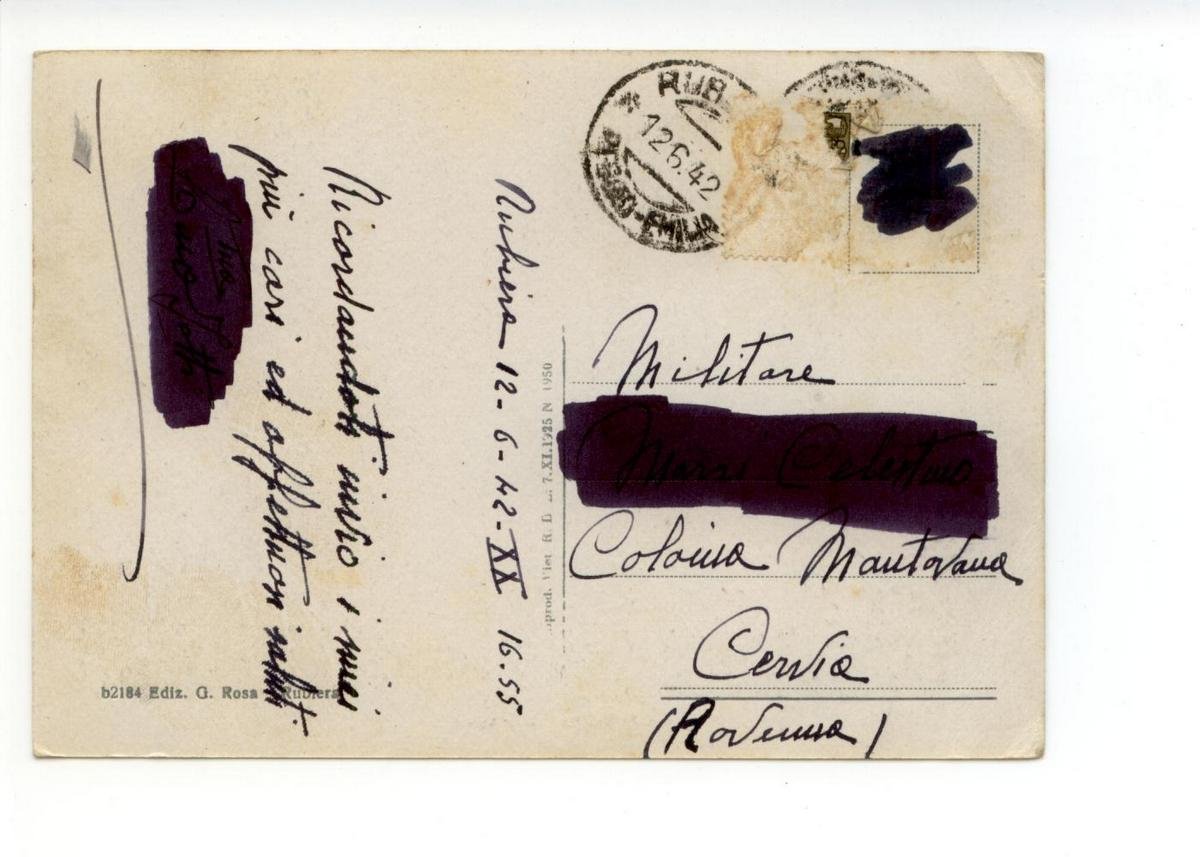 RUB
12.6.42
REGGIO-EMILIA
Rubiera 12-6-42-XX 16.55
Ricordandoti invio i miei
più cari ed affettuosi saluti.
Militare
Colonia Mantovana
Cervia
(Ravenna)
b2184 Ediz. G. Rosa - Rubiera
7.XI.1925 N 1950